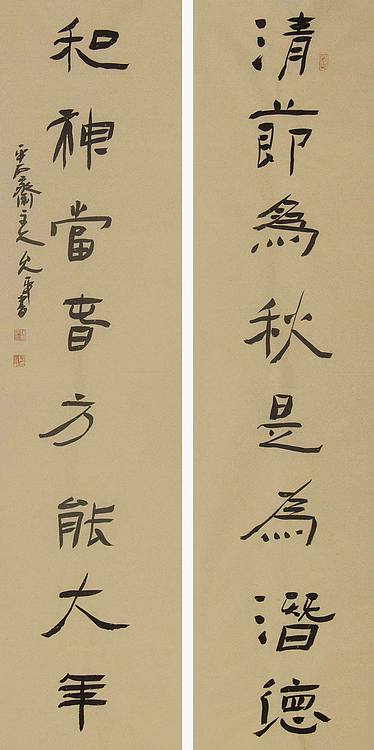 清節為秋是為潛德
和神當春方能大年
齋主人允平書